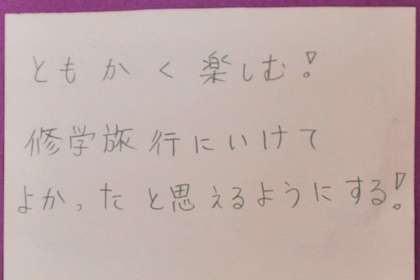 ともかく楽しむ!
修学旅行にいけて
よかったと思えるようにする!